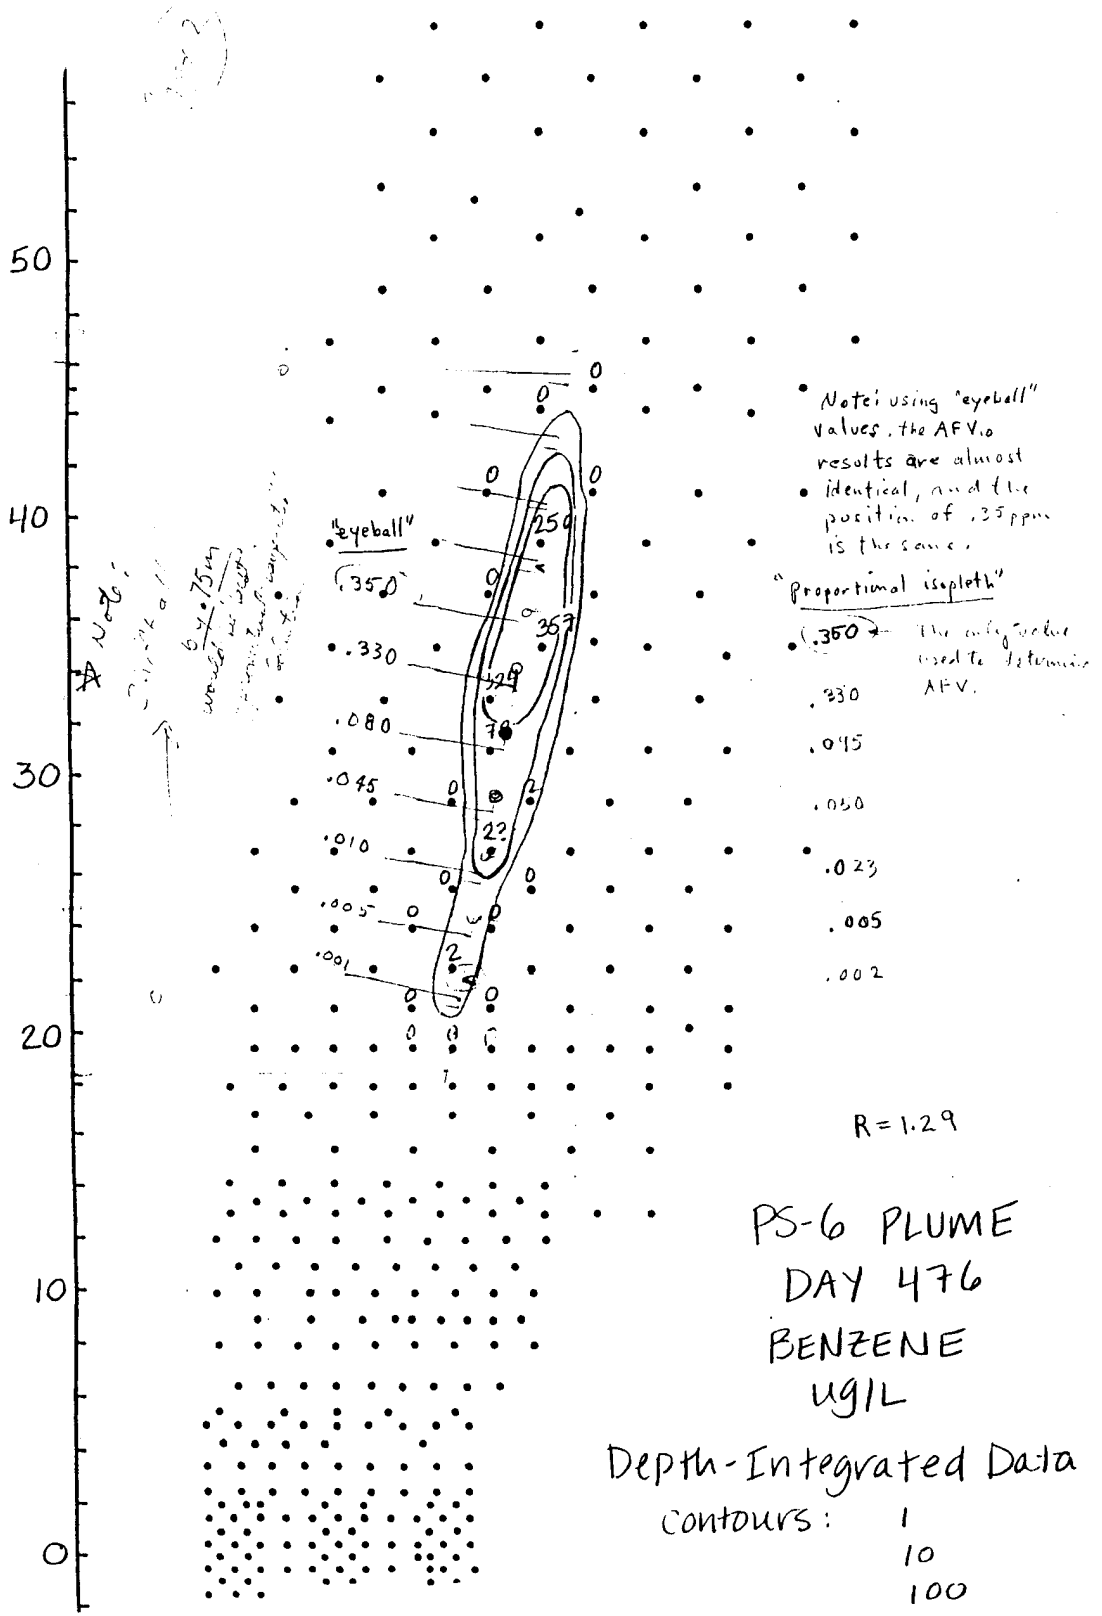 50
40
30
20
10
0
0
0
0
0
250
0
357
329
78
0
2
22
0
0
0
0
2
0
0
0
0
"eyeball"
.350
.330
.080
.045
.010
.005
.001
* Note:
by .75m
would
Note: using "eyeball"
values, the AFV10
results are almost
identical, and the
position of .35ppm
is the same.
"Proportional isopleth"
.350 The only value
used to determine
AFV.
.330
.045
.050
.023
.005
.002
R = 1.29
PS-6 PLUME
DAY 476
BENZENE
ug/L
Depth-Integrated Data
contours: 1
10
100